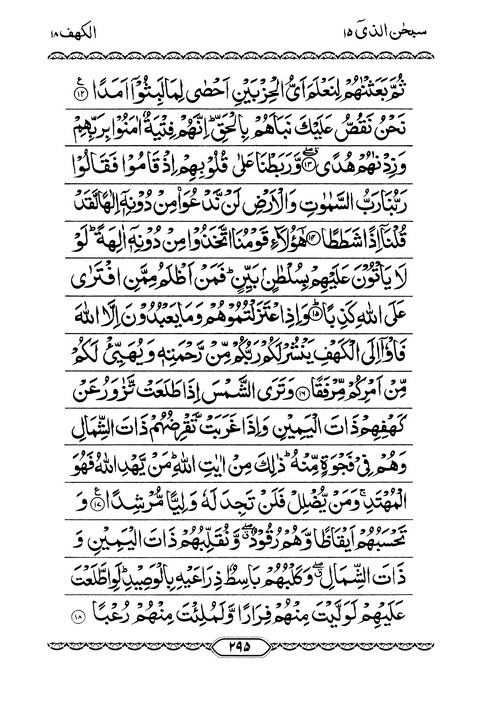 سبحن الذیٓ ۱۵
الکهف ۱۸
ثُمَّ بَعَثْنٰهُمْ لِنَعْلَمَ اَیُّ الْحِزْبَیْنِ اَحْصٰی لِمَا لَبِثُوْۤا اَمَدًا ۝۱۲ ع
نَحْنُ نَقُصُّ عَلَیْكَ نَبَاَهُمْ بِالْحَقِّ ؕ اِنَّهُمْ فِتْیَةٌ اٰمَنُوْا بِرَبِّهِمْ
وَزِدْنٰهُمْ هُدًی ۝۱۳ۖ وَّرَبَطْنَا عَلٰی قُلُوْبِهِمْ اِذْ قَامُوْا فَقَالُوْا
رَبُّنَا رَبُّ السَّمٰوٰتِ وَالْاَرْضِ لَنْ نَّدْعُوَا۠ مِنْ دُوْنِهٖۤ اِلٰهًا لَّقَدْ
قُلْنَاۤ اِذًا شَطَطًا ۝۱۴ هٰۤؤُلَآءِ قَوْمُنَا اتَّخَذُوْا مِنْ دُوْنِهٖۤ اٰلِهَةً ؕ لَوْ
لَا یَاْتُوْنَ عَلَیْهِمْ بِسُلْطٰنٍۭ بَیِّنٍ ؕ فَمَنْ اَظْلَمُ مِمَّنِ افْتَرٰی
عَلَی اللّٰهِ كَذِبًا ۝۱۵ؕ وَاِذِ اعْتَزَلْتُمُوْهُمْ وَمَا یَعْبُدُوْنَ اِلَّا اللّٰهَ
فَاْوٗۤا اِلَی الْكَهْفِ یَنْشُرْ لَكُمْ رَبُّكُمْ مِّنْ رَّحْمَتِهٖ وَیُهَیِّئْ لَكُمْ
مِّنْ اَمْرِكُمْ مِّرْفَقًا ۝۱۶ وَتَرَی الشَّمْسَ اِذَا طَلَعَتْ تَّزٰوَرُ عَنْ
كَهْفِهِمْ ذَاتَ الْیَمِیْنِ وَاِذَا غَرَبَتْ تَّقْرِضُهُمْ ذَاتَ الشِّمَالِ
وَهُمْ فِیْ فَجْوَةٍ مِّنْهُ ؕ ذٰلِكَ مِنْ اٰیٰتِ اللّٰهِ ؕ مَنْ یَّهْدِ اللّٰهُ فَهُوَ
الْمُهْتَدِ ۚ وَمَنْ یُّضْلِلْ فَلَنْ تَجِدَ لَهٗ وَلِیًّا مُّرْشِدًا ۝۱۷ ع وَ
تَحْسَبُهُمْ اَیْقَاظًا وَّهُمْ رُقُوْدٌ ۖ وَّنُقَلِّبُهُمْ ذَاتَ الْیَمِیْنِ وَ
ذَاتَ الشِّمَالِ ۖ وَكَلْبُهُمْ بَاسِطٌ ذِرَاعَیْهِ بِالْوَصِیْدِ ؕ لَوِ اطَّلَعْتَ
عَلَیْهِمْ لَوَلَّیْتَ مِنْهُمْ فِرَارًا وَّلَمُلِئْتَ مِنْهُمْ رُعْبًا ۝۱۸
۲۹۵